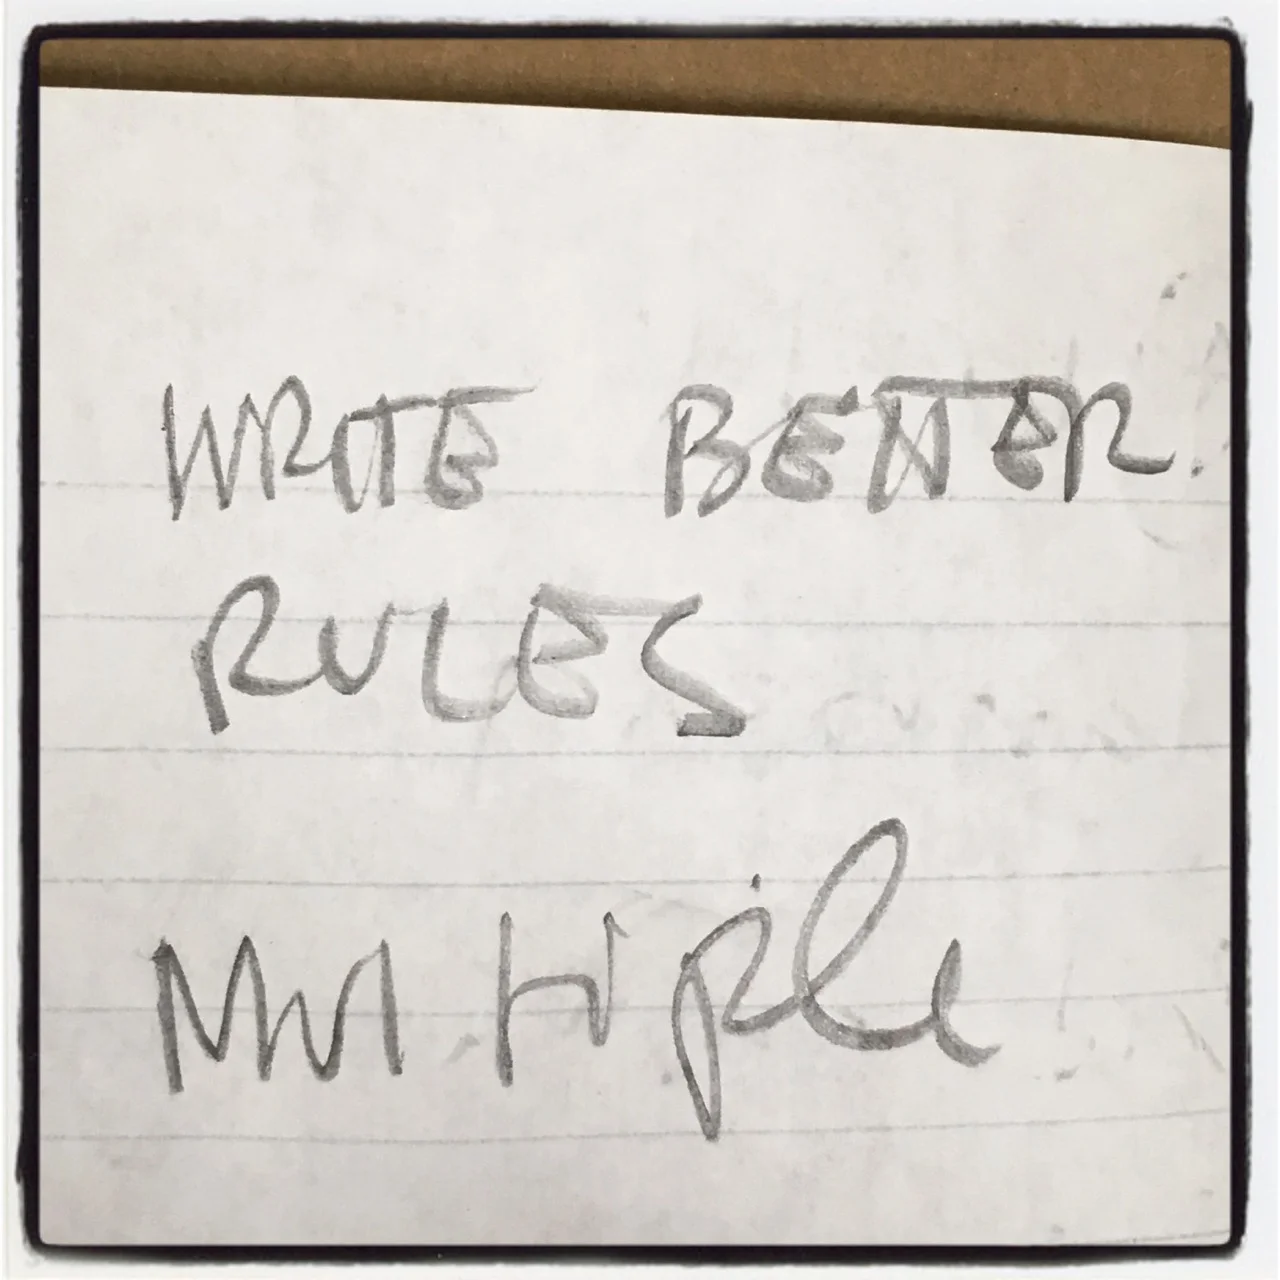 WRITE BETTER
RULES
Multiple